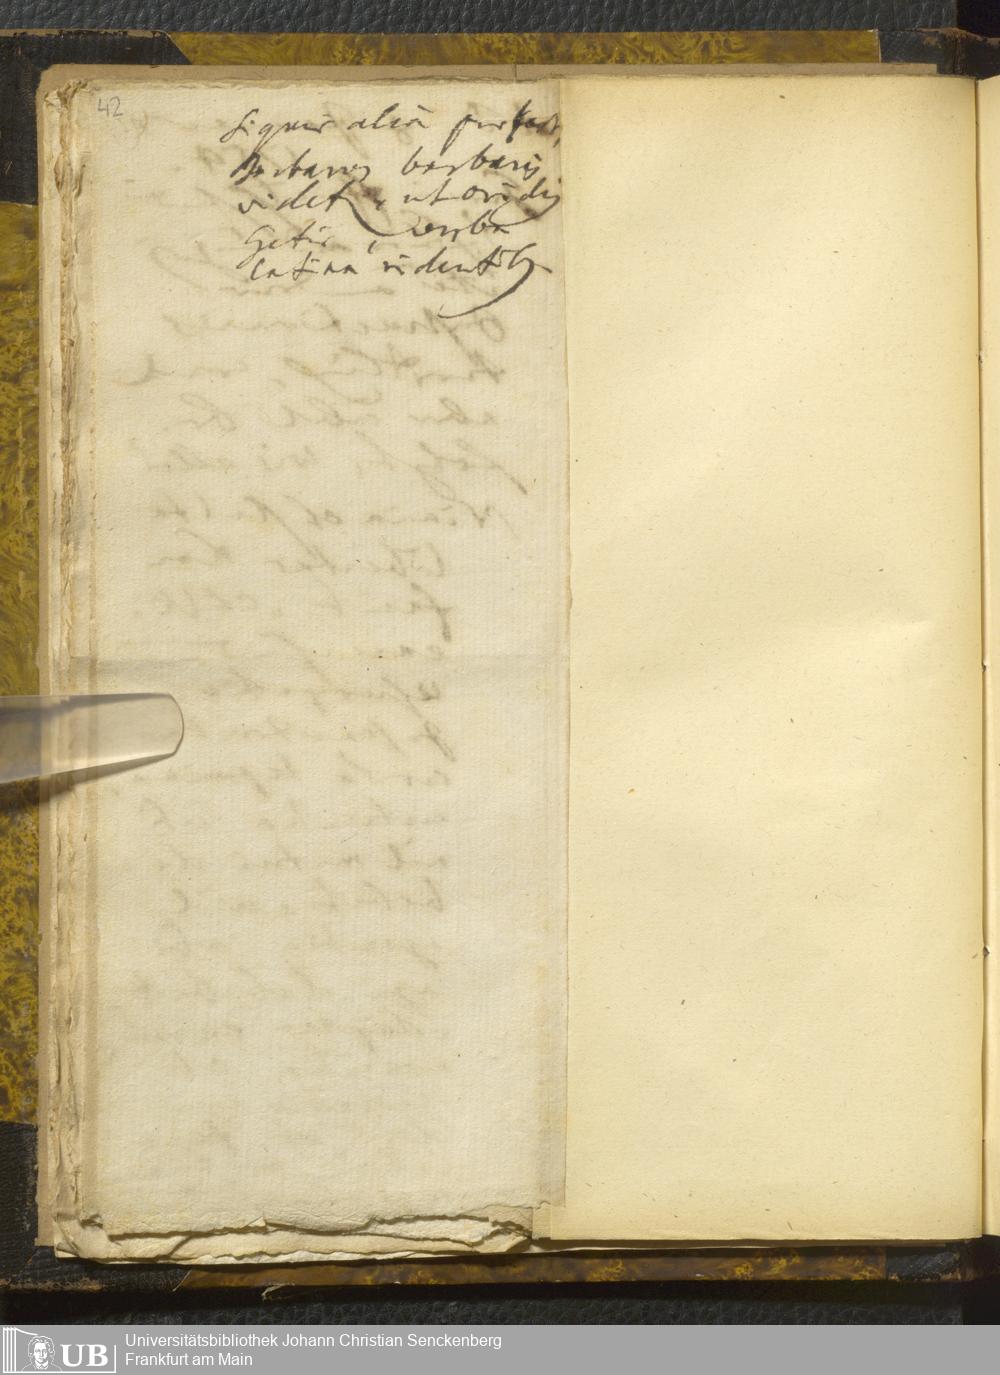 42
siquis aliā
Barbarus barbaris
videtr, ut ovidiꝰ
Getis, verba
latina ridentibꝫ
UB
Universitätsbibliothek Johann Christian Senckenberg
Frankfurt am Main